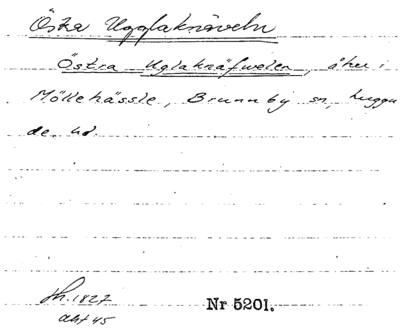 Östra Ugglaknäveln
Östra Uglaknäfwelen, åker i
Möllehässle, Brunnby sn, Luggu
de hd.
Sk. 1827
akt 45
Nr 5201.